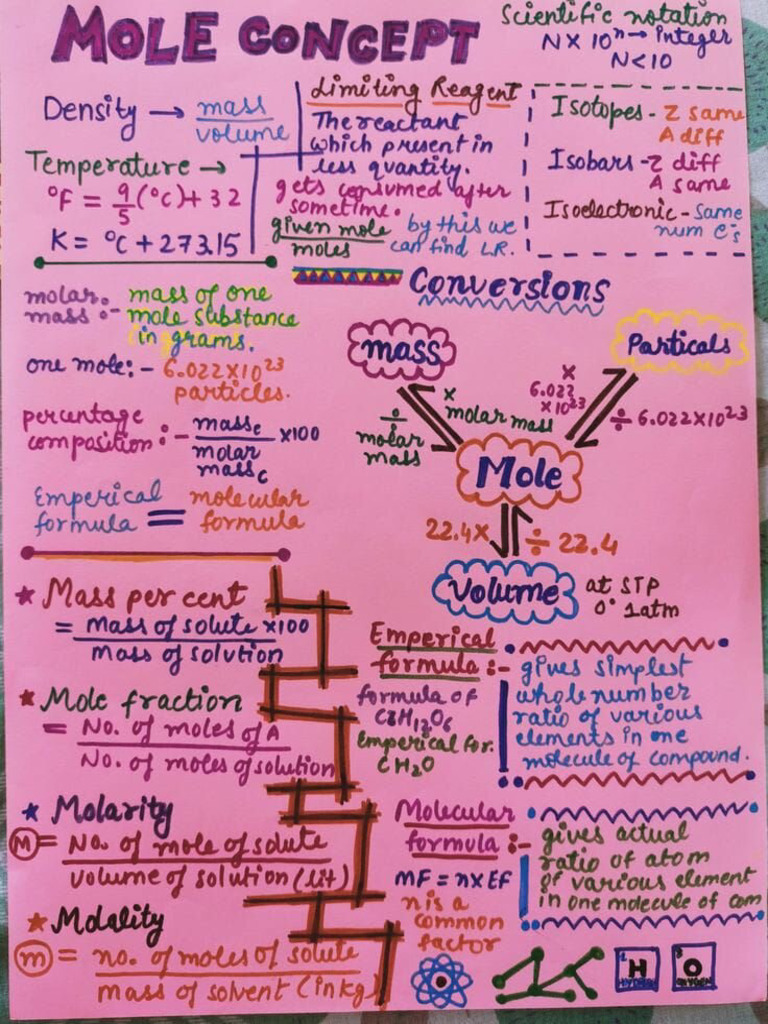 MOLE CONCEPT
Scientific notation
N × 10ⁿ → Integer
N < 10
Density → mass
volume
Temperature →
°F = 9/5 (°C) + 32
K = °C + 273.15
Limiting Reagent
The reactant
which present in
less quantity.
gets consumed after
sometime.
given mole
moles
by this we
can find L.R.
Isotopes - Z same
A diff
Isobars - Z diff
A same
Isoelectronic - same
num e⁻s
molar
mass :- mass of one
mole substance
(in grams.
one mole :- 6.022×10²³
particles.
percentage
composition :- massₑ ×100
molar
mass꜀
Emperical
formula = molecular
formula
Conversions
mass
Particals
× molar mass
÷ molar
mass
×
6.022
×10²³
÷ 6.022×10²³
Mole
22.4×
÷ 22.4
Volume
at STP
0° 1atm
★ Mass per cent
= Mass of solute ×100
Mass of solution
★ Mole fraction
= No. of moles of A
No. of moles of solution
★ Molarity
M = No. of mole of solute
volume of solution (lit)
★ Molality
m = no. of moles of solute
mass of solvent (in kg)
Emperical
formula :-
gives simplest
whole number
ratio of various
elements in one
molecule of compound.
formula of
C6H12O6
Emperical for.
CH2O
Molecular
formula :-
gives actual
ratio of atom
of various element
in one molecule of com
MF = n×EF
n is a
common
factor
H
O